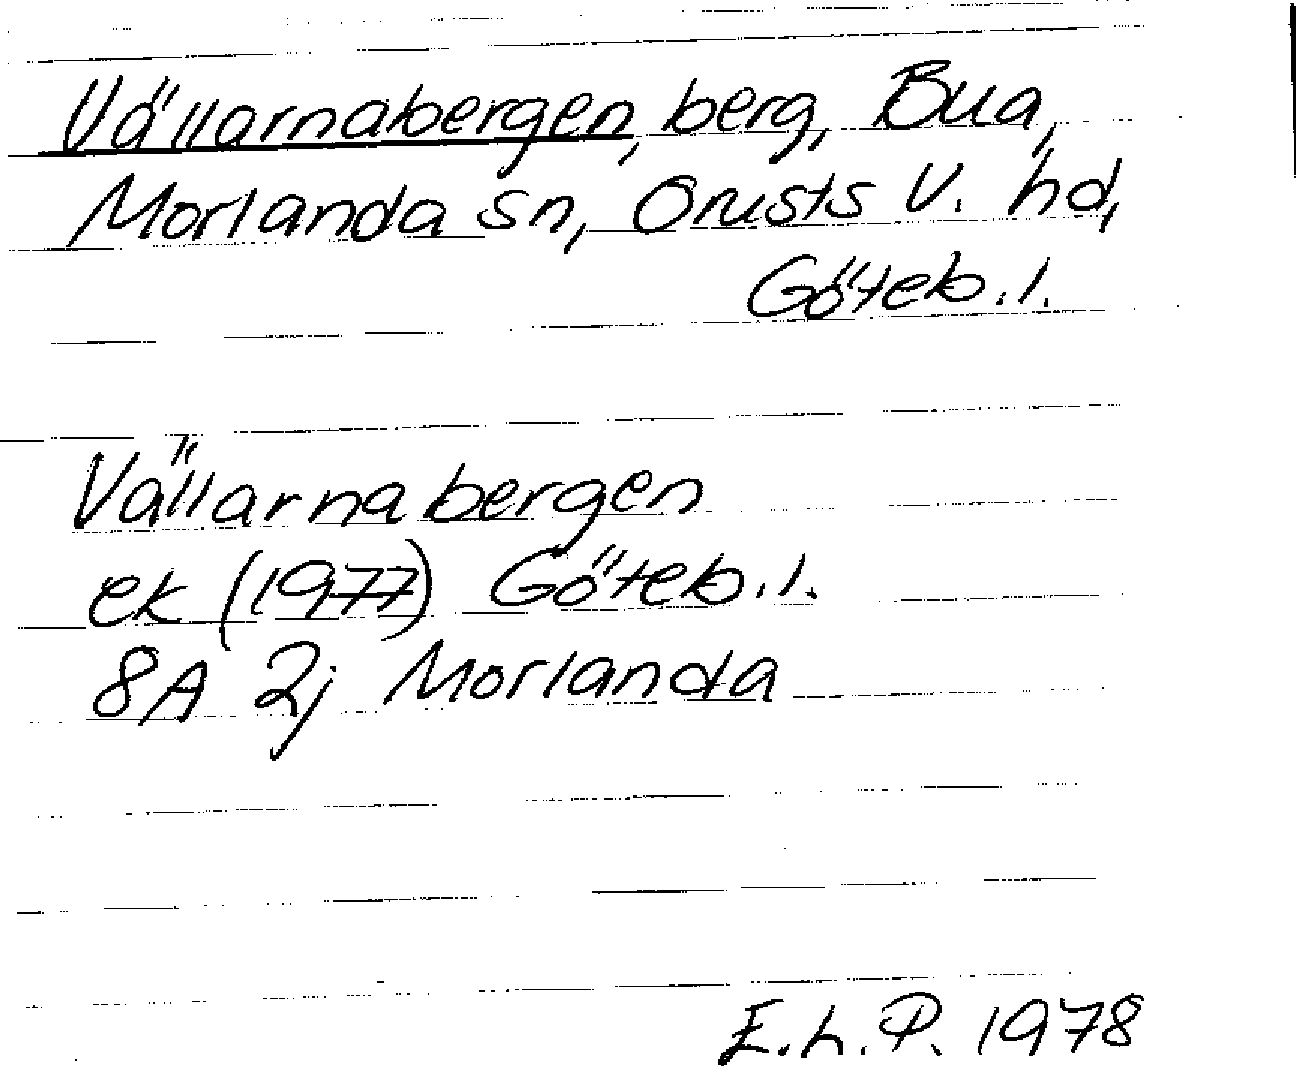 Vällarnabergen, berg, Bua,
Morlanda sn, Orusts V. hd,
Göteb.l.
Vällarnabergen
ek (1977) Göteb.l.
8A 2j Morlanda
E.L.P. 1978